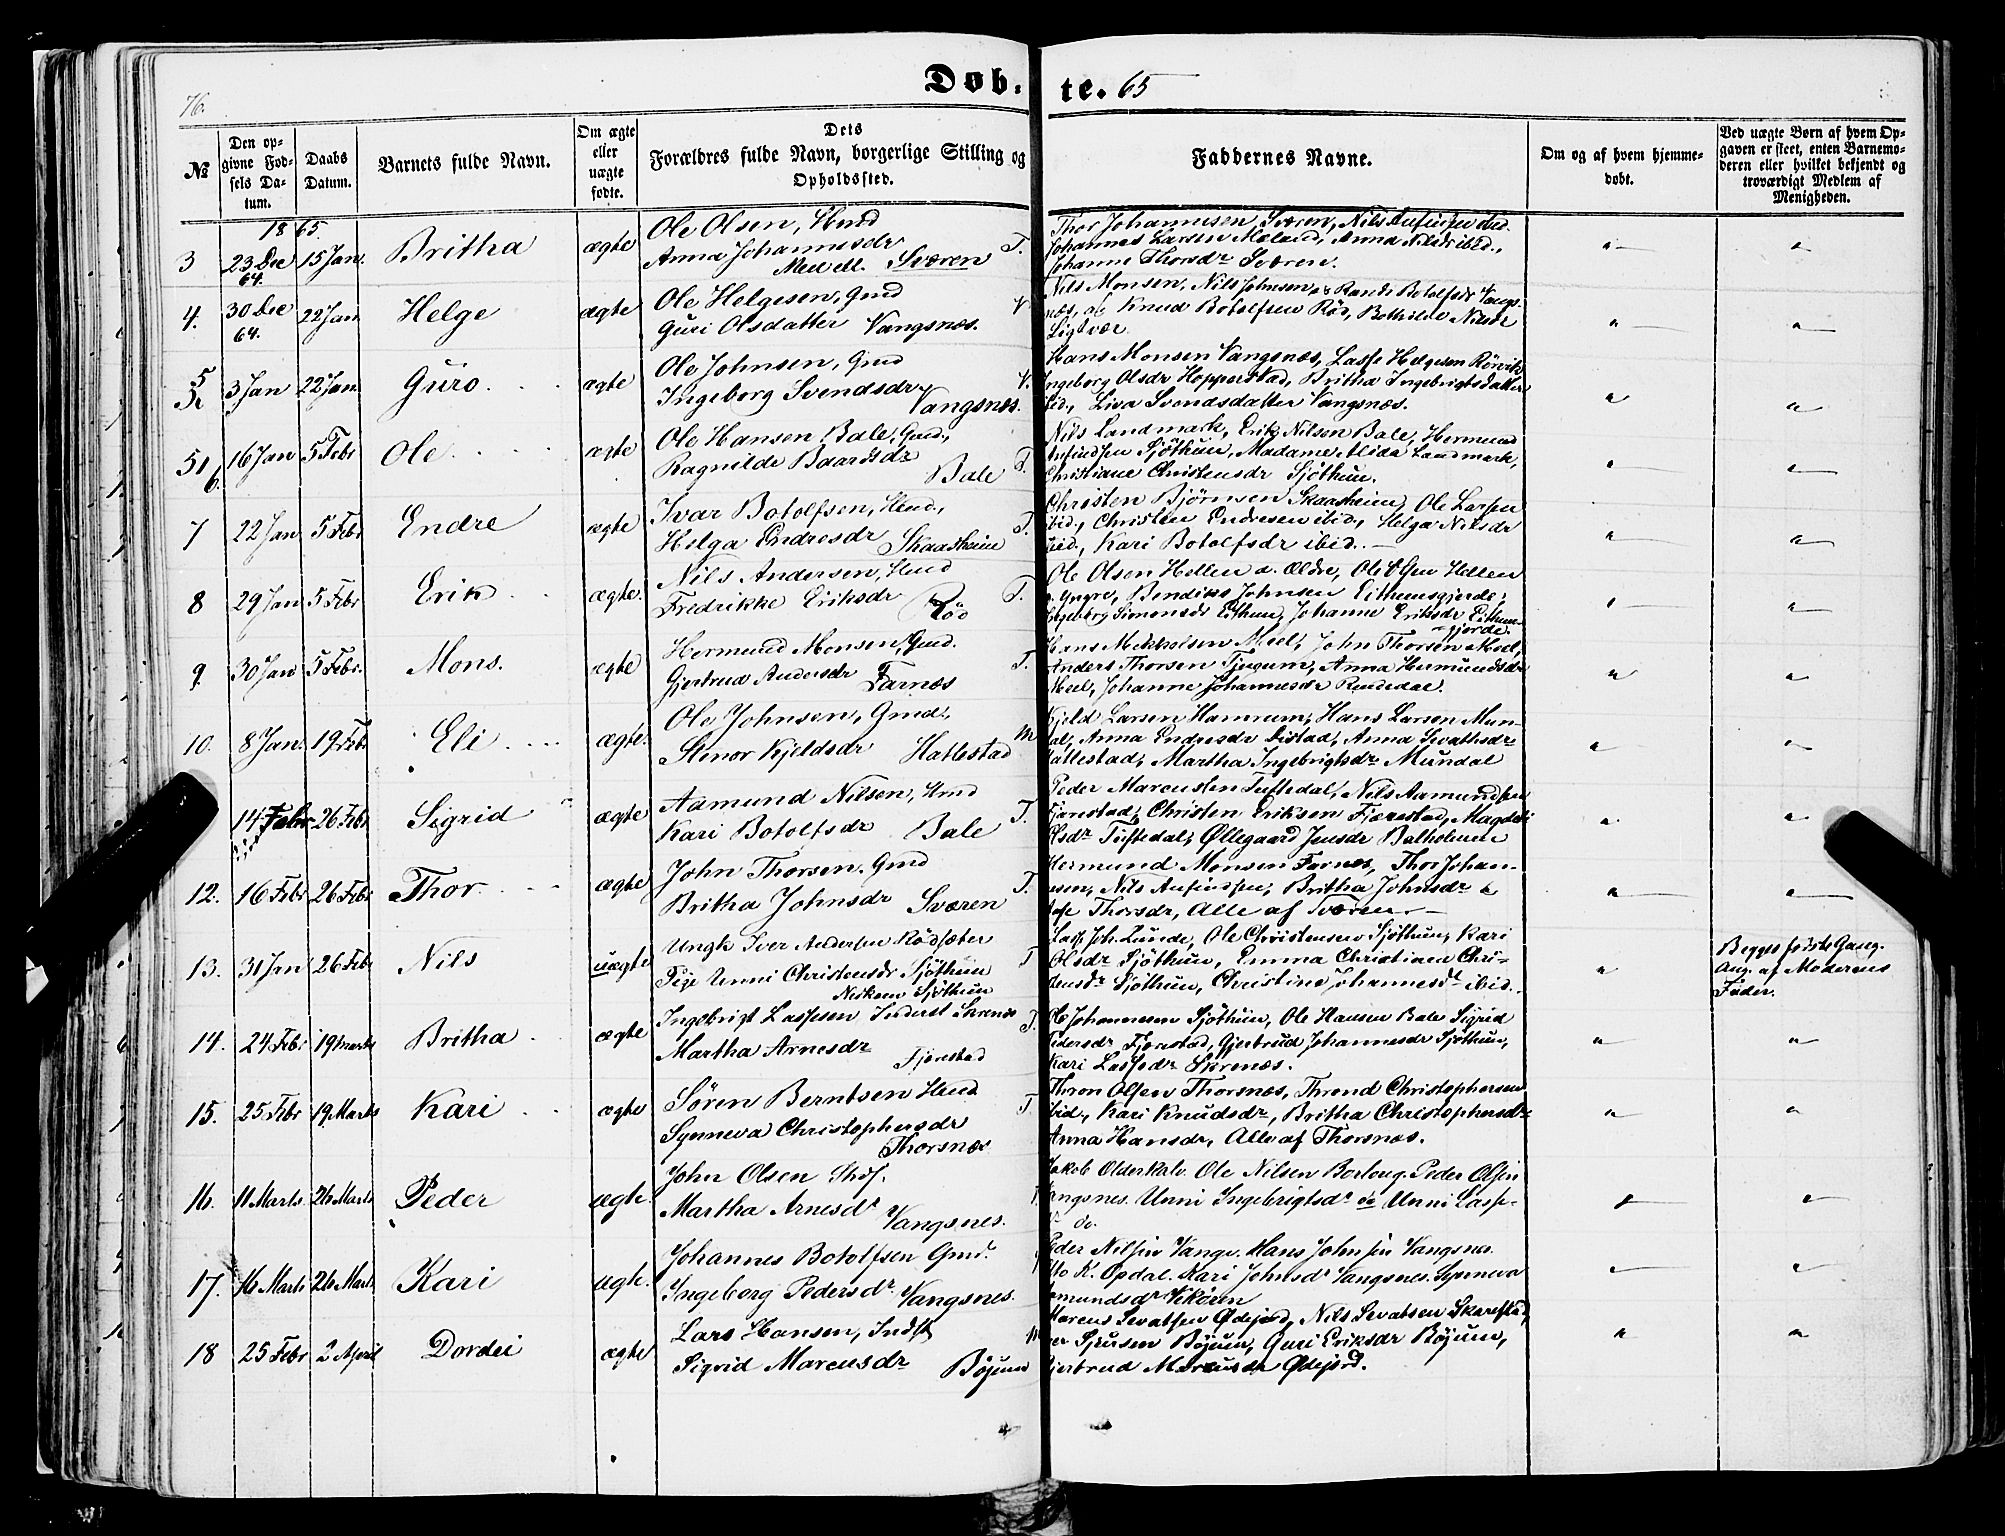 76.
Døb- te. 65
№
Den opgivne Fødsels Datum.
Daabs Datum.
Barnets fulde Navn.
Om ægte eller uægte fødte.
Dets Forældres fulde Navn, borgerlige Stilling og Opholdssted.
Faddernes Navne.
Om og af hvem hjemmedøbt.
Ved uægte Børn af hvem Opgaven er skeet, enten Barnemoderen eller hvilket bekjendt og troværdigt Medlem af Menigheden.
1865.
3 23 Dec 64. 15 Jan. Britha ægte
Ole Olsen, Hmd
Anna Johannesdr
Sværen T.
Thor Johannesen Sværen, Nils Anfinsen ibid.
Johannes Larsen Meland, Anna Nilsdr ibid.,
Johanne Thorsdr Sværen.
4. 30 Dec 64. 22 Jan Helge ægte
Ole Helgesen, Gmd
Guri Olsdatter Vangsnæs. V
Nils Monsen, Nils Johnsen & Randi Botolfsdr Vangs-
næs, Knud Botolfsen Rød, Bothilde Nilsdr
Sigtvær.
5 3 Jan 22 Jan Guro ægte
Ole Johnsen, Gmd
Ingeborg Svendsdr Vangsnæs. V.
Hans Monsen Vangsnæs, Lasse Helgesen Rørvik
Ingeborg Olsdr Hopperstad, Britha Ingebrigtsdatter
ibid., Liva Svendsdatter Vangsnæs.
6. 16 Jan 5 Febr Ole ægte
Ole Hansen Bale, Gmd.,
Ragnilde Baardsdr Bale T.
Nils Landmark, Erik Nilsen Bale, Hermund
Anfindsen Sjøthun, Madame Alida Landmark,
Christiane Christensdr Sjøthun.
7 22 Jan 5 Febr Endre ægte
Ivar Botolfsen, Hmd.,
Helga Endresdr Skaasheim T.
Christen Bjørnsen Skaasheim, Ole Larsen
ibid., Christen Endresen ibid., Helga Nilsdr
ibid., Kari Botolfsdr ibid.
8 29 Jan 5 Febr Erik ægte.
Nils Andersen, Hmd
Fredrikke Eriksdr Rød T.
Ole Olsen Hellen d. Ældre, Ole Olsen Hellen
d. Yngre, Bendiks Johnsen Eithunsgjerde,
Ingeborg Simonsdr Eithun, Johanne Eriksdr Eithuns-
gjerde.
9. 30 Jan 5 Febr. Mons. ægte
Hermund Monsen, Gmd.
Gjertrud Andersdr Farnæs T.
Hans Mikkelsen Meel, John Thorsen Meel,
Anders Thorsen Tjugum, Anna Hermundsdr
Meel, Johanne Johannesdr Rendedal.
10. 8 Jan. 19 Febr Eli ægte.
Ole Johnsen, Gmd.,
Stenor Kjeldsdr Hatlestad M
Kjeld Larsen Hamrum, Hans Larsen Mun-
dal, Anna Endresdr Distad, Anna Sevathsdr
Hatlestad, Martha Ingebrigtsdr Mundal
14 Febr 26 Febr Sigrid ægte
Aamund Nilsen, Hmd
Kari Botolfsdr Bale T.
Peder Marcussen Tuftedal, Nils Aamundsen
Fjærestad, Christen Eriksen Fjærestad, Magdeli
Olsdr Tuftedal, Øllegaard Jensdr Balholmen
12. 16 Febr 26 Febr Thor ægte
John Thorsen. Gmd
Britha Johnsdr Sværen T.
Hermund Monsen Farnæs, Thor Johan-
nesen, Nils Anfindsen, Britha Johnsdr &
Thorsdr, Alle af Sværen
13. 31 Jan 26 Febr Nils uægte
Ungk Iver Andersen Rødseter
Pige Unni Christensdr Sjøthun
Sjøthun T
Lasse Joh. Lunde, Ole Christensen Sjøthun, Kari
Olsdr Sjøthun, Emma Christiane Chri-
stensdr Sjøthun, Christine Johannesdr ibid.
Begges første Gang.
Ang. af Moderens
Fader.
14. 24 Febr 19 Marts Britha ægte
Ingebrigt Lassesen Inderst Skrenæs
Martha Arnesdr Fjærestad T.
Ole Johannesen Sjøthun, Ole Hansen Bale Sigrid
Pedersdr Fjærestad, Gjertrud Johannesdr Sjøthun,
Kari Lassedr Skrenæs.
15. 25 Febr 19 Marts Kari ægte
Søren Berntsen Hmd
Synneva Christophersdr
Thorsnæs T
Thron Olsen Thorsnæs, Thrond Christophersen
ibid., Kari Knudsdr, Britha Christophersdr
Anna Hansdr, Alle af Thorsnæs.
16. 11 Marts 26 Marts Peder ægte.
John Olsen
Martha Arnesdr Vangsnes.
Jakob Olderkalv. Ole Nilsen Borlaug. Peder Olsen
Vangsnes. Unni Ingebrigtsdr do Unni Lasse-
do.
17. 16 Marts 26 Marts Kari ægte.
Johannes Botolfsen Gmd.
Ingeborg Pedersdr. Vangsnes.
Peder Nilsen Vange. Hans Johnsen Vangsnes.
K. Opdal. Kari Johnsdr Vangsnes. Synneva
Amundsdr Vikøren
18 25 Febr 2 April Dordei ægte
Lars Hansen, Indst
Sigrid Marcusdr Bøjum M
Marcus Sevatsen Ødejord, Nils Sevatsen Skarestad,
Sjursen Bøjum, Guri Eriksdr Bøjum,
Gjertrud Marcusdr Ødejord.